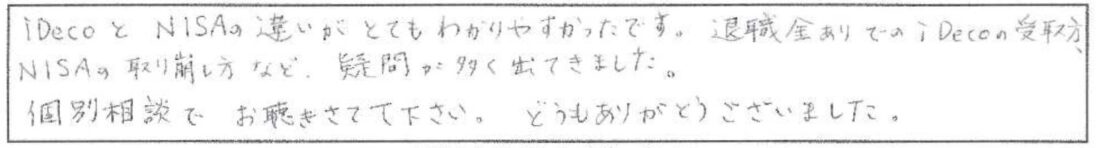 iDecoと NISAの違いがとてもわかりやすかったです。退職金ありでのiDecoの受取方、
NISAの取り崩し方など、疑問が多く出てきました。
個別相談で お聴きさてて下さい。 どうもありがとうございました。